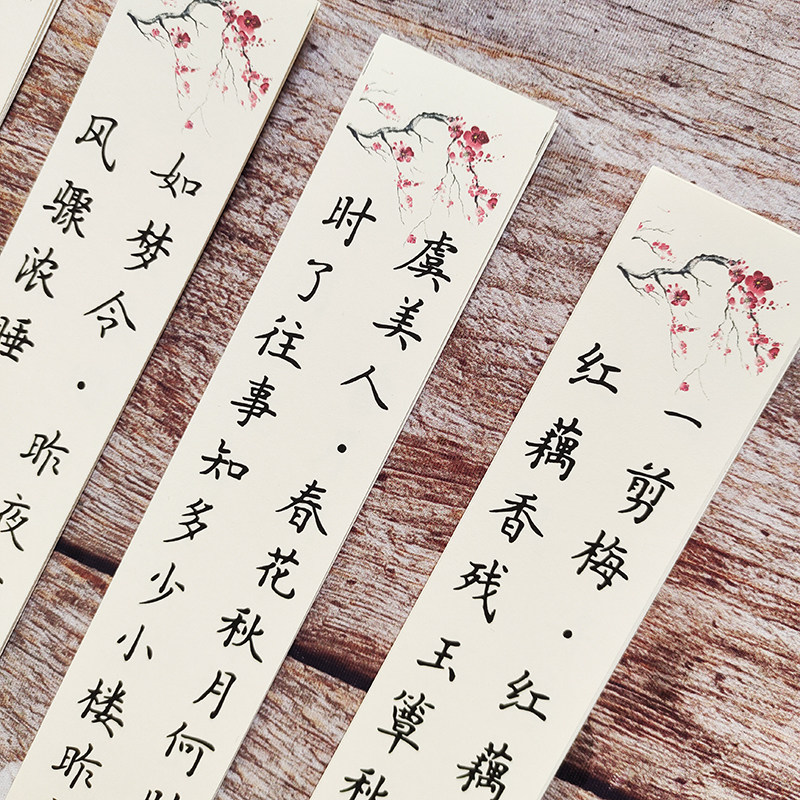 如梦令·昨夜
风骤浓睡
虞美人·春花秋月何时
时了往事知多少小楼昨
一剪梅·红藕
红藕香残玉簟秋